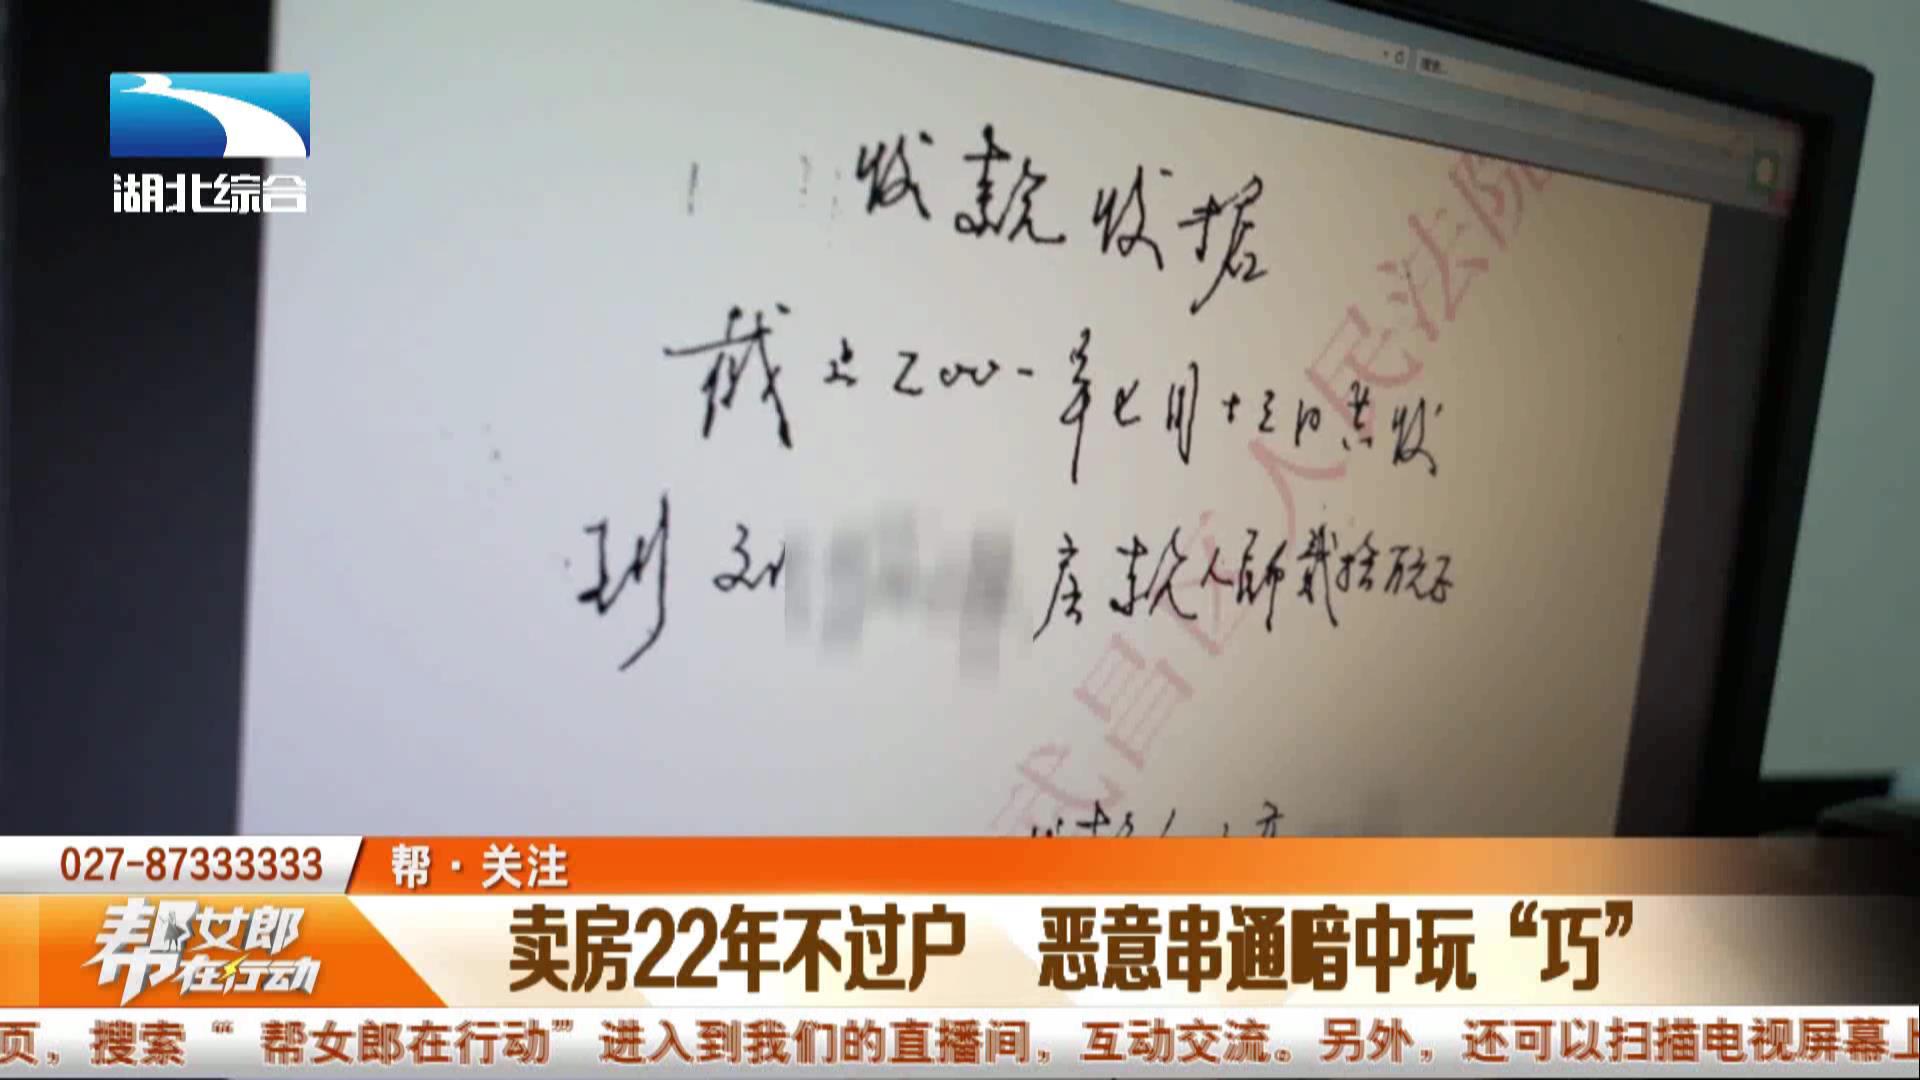 湖北综合
收款收据
截止2001年七月十三日共收
到刘
房款人民币贰拾万元正
武昌区人民法院
027-87333333
帮·关注
帮女郎
在行动
卖房22年不过户 恶意串通暗中玩“巧”
页，搜索“ 帮女郎在行动”进入到我们的直播间，互动交流。另外，还可以扫描电视屏幕上